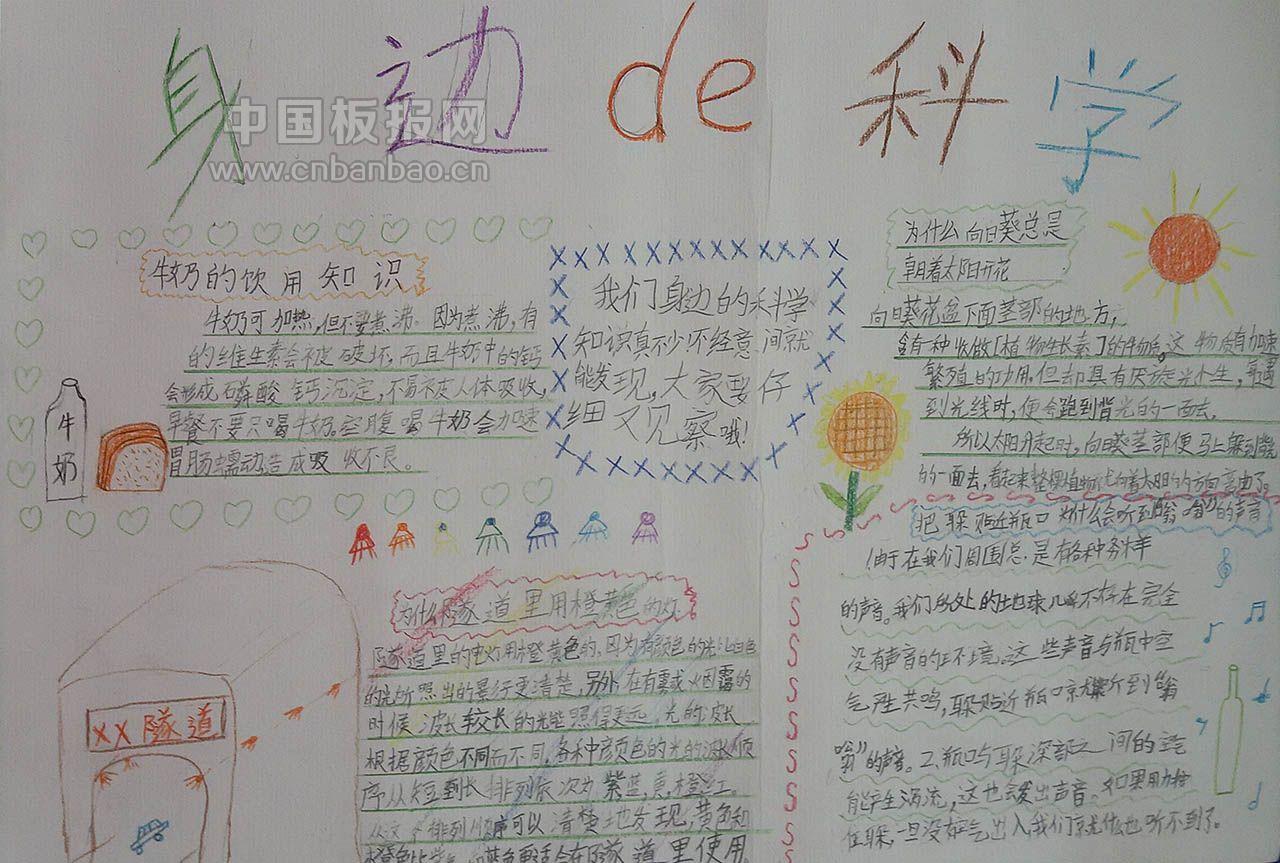 身边de科学
中国板报网
www.cnbanbao.cn
牛奶的饮用知识
牛奶可加热,但不要煮沸。因为煮沸,有
的维生素会被破坏,而且牛奶中的钙
会形成磷酸钙沉淀,不易被人体吸收,
早餐不要只喝牛奶。空腹喝牛奶会加速
胃肠蠕动造成吸收不良。
牛奶
我们身边的科学
知识真不少不经意间就
能发现,大家要仔
细观察哦!
为什么向日葵总是
朝着太阳开花
向日葵花盘下面茎部的地方,
含有一种叫做「植物生长素」的物质。这物质有加速
繁殖的功用。但却具有厌旋光性,每遇
到光线时,便会跑到背光的一面去。
所以太阳升起时,向日葵茎部便马上躲到背光
的一面去,看起来整棵植物
把耳朵贴近瓶口为什么会听到"嗡嗡"的声音
由于在我们周围总是有各种各样
的声音。我们所处的地球几乎不存在完全
没有声音的环境,这些声音与瓶中空
气产生共鸣,耳朵贴近瓶口就能听到"嗡
嗡"的声音。2.瓶口与耳朵深部之间的空
能产生涡流,这也会发出声音。如果用力
住耳朵,一旦没有空气出入我们就什么也听不到了。
为什么隧道里用橙黄色的灯
隧道里的电灯用橙黄色的,因为有颜色的光比白色
的光所照出的景物更清楚,另外在有雾或烟雾的
时候波长较长的光能照得更远。光的波长
根据颜色不同而不同,各种颜色的光的波长顺
序从短到长排列依次为紫,蓝,黄,橙,红。
从这个排列顺序可以清楚地发现,黄色和
橙色比紫色、蓝色更适合在隧道里使用。
XX隧道